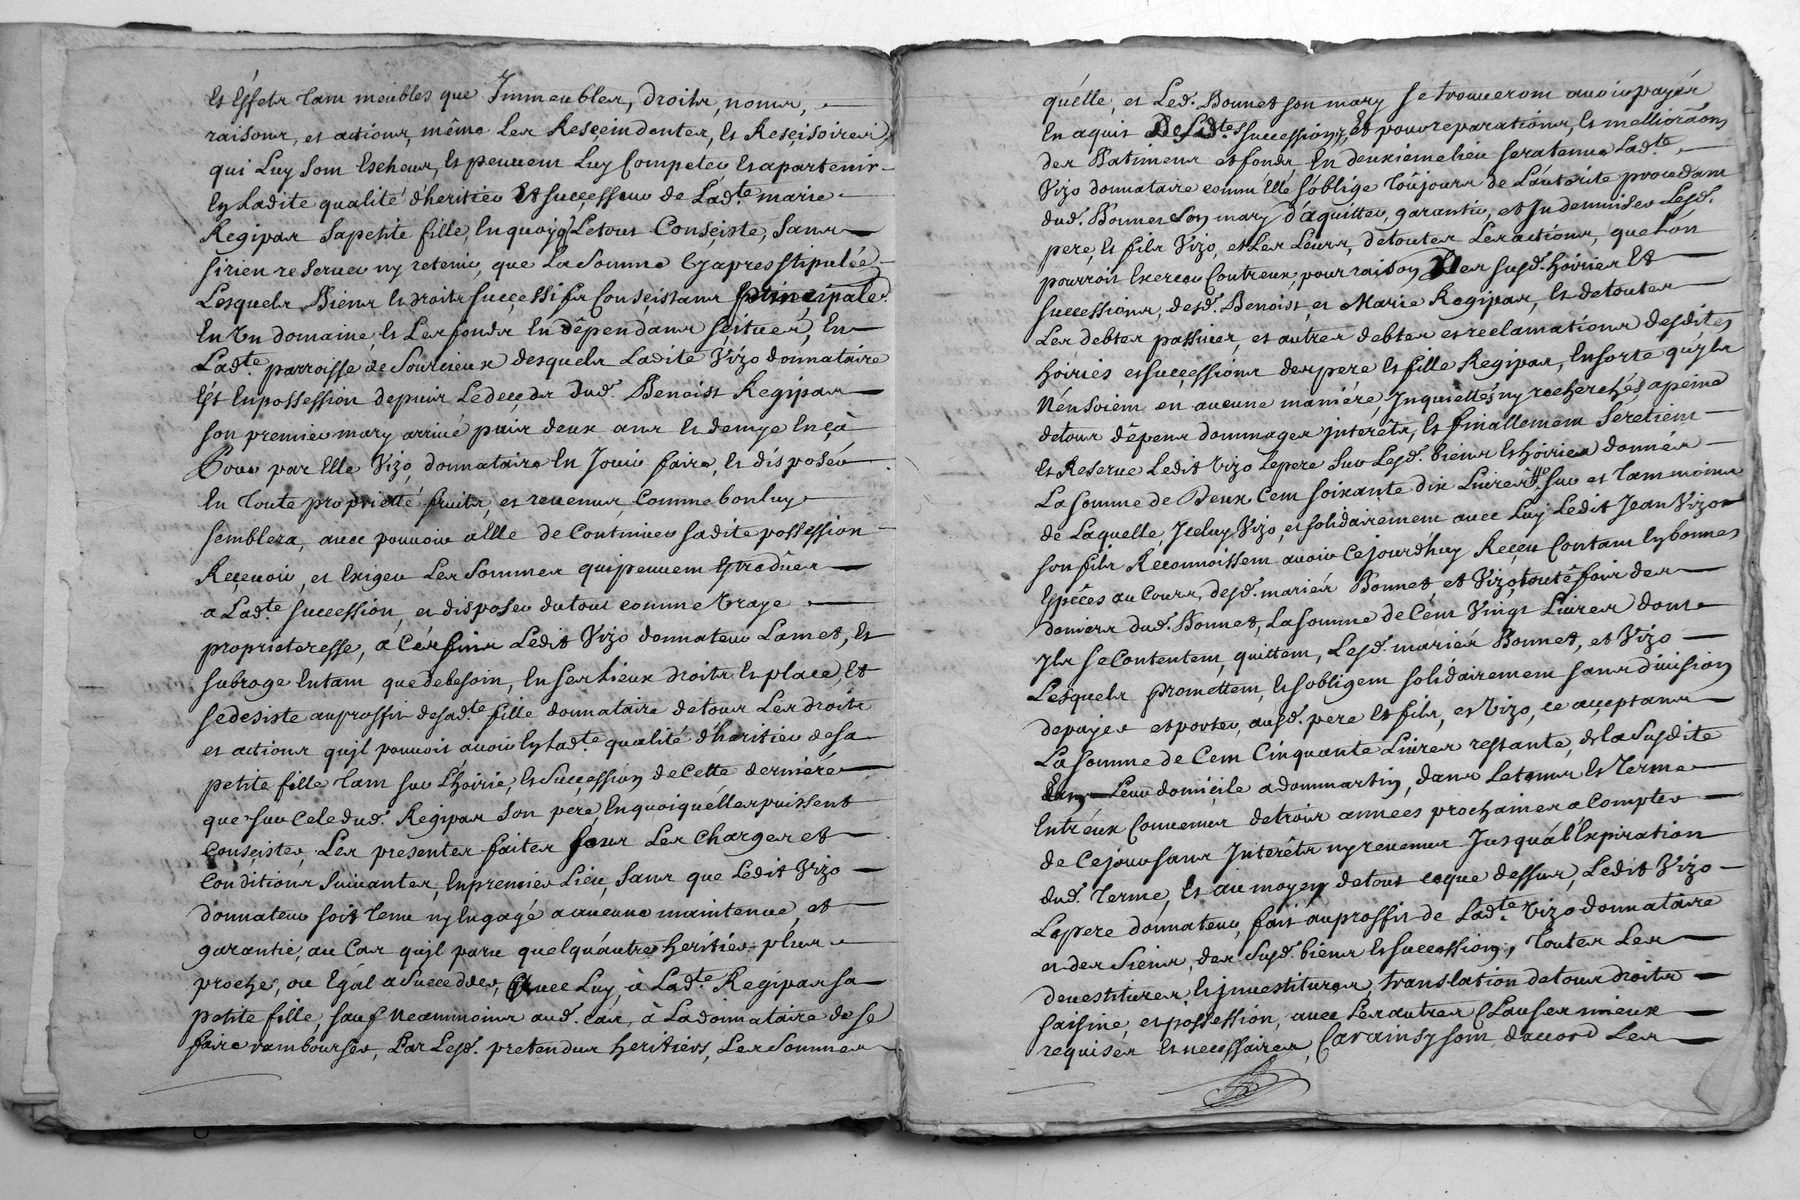 et effets tam meubles que Immeubles, droits, noms,
raisons, et actions, même les Resçeindentes, et Resçisoires
qui Luy som escheus, et peuvem Luy Competer et apartenir
en Ladite qualité d'heritier Et successeur de Lad.te marie
Regipas sa petite fille, en quoyq Letout Conseiste, sans
sirien reserver ny retenir, que La somme Cy apres stipulée,
Lesquels Biens et droits successifs Conseistans principale.
En Un domaine, et Les fonds En dépendans seitués, En
Lad.te parroisse de Sourcieux desquels Ladite Vizo donnataire
Est En possession depuis Le deceds dud. Benoist Regipas
son premier mary arrivé puis deux ans et demye En ça
Pour par Elle Vizo, donnataire En Jouir faire, et disposer
En toute proprietté fruits, et revenus, Comme bon luy
semblera, avec pouvoir a Elle de Continuer sadite possession
Reçevoir, et Exiger Les sommes qui peuvem Estre dües
a Lad.te succession, et disposer du tout comme vraye
proprieteresse, a Cés fins Ledit Vizo donnateur La met, Et
subroge En tam que de besoin, En ses Lieux droits et place, Et
se desiste au proffit de sad.te fille donnataire de tous Les droits
et actions qu'jl pouvoit avoir En Lad.te qualité d'heritier de sa
petite fille tam sur L'hoirie, et Succession de Cette derniére
que sur Cele dud. Regipas son pere, En quoi qu'elles puissent
Conseister, Les presentes faites sous Les Charges et
Conditions suivantes, En premier Lieu, sans que Ledit Vizo
donnateur soit tenu ny Engagé a aucune maintenue, et
garantie, au Cas qu'jl paru quelqu'autre heritiér plus
proche, ou Egal a succeder, Avec Luy, à Lad.te Regipas sa
petite fille, sauf Neammoins aud. cas, à La donnataire de se
faire rambourser, Par Lesd. pretendus heritiérs, Les sommes
qu'elle, et Led. Bonnet son mary se trouverom avoir payér
En aquit De Lad.tes successions, Et pour reparations, et melliorãons
des Batimens et fonds En deuxieme lieu sera tenue Lad.te
Vizo donnataire comm'Elle s'oblige toûjours de L'autorité procedam
dud. Bonnet Son mary d'aquitter, garantir, et Jndemniser Lesd.
pere, Et fils Vizo, et Les Leurs, de toutes Les actions, que Lón
pourroit Exercer Contreux, pour raison, Des susd. hoiries Et
successions, desd. Benoist, et Marie Regipas, Et de toutes
Les debtes passives, et autres debtes et reclamations desdites
hoiriés et successions des pere Et fille Regipas, En sorte qu'jls
N'en soiem en aucune maniére Jnquiettés ny recherchés, a peine
de tous dépens dommages jnteréts, Et finallemem se retiem
Et Reserve Ledit Vizo Le pere sur Lesd. biens Et hoiries donnés
La somme de Deux Cem soixante dix Livres, sur et tam moins
de Laquelle, Jceluy Vizo, et solidairemem avec Luy Ledit Jean Vizo
son fils Réconnoissem avoir Ce jourd'huy Reçeu Contam En bonnes
Espéces au Cours, desd. mariés Bonnet et Vizo, toutéfois des
deniers dud. Bonnet, La somme de Cém Vingt Livres dom
Jls se Contentem, quittem, Lesd. mariés Bonnet, et Vizo
Lesquels promettem, Et s'obligem solidairemem sans division
de payer et porter, ausd. pere Et fils, et Vizo, ce acçeptans
La somme de Cem Cinquante Livres restante, de la susdite
En Leur domiçile a dommartin, dans Le tems Et terme
Entréux Convenus de trois annees prochaines a Compter
de Ce jour sans Jnteréts ny revenus Jusqu'à L'Expiration
dud. terme, Et au moyen de tout ce que dessus, Ledit Vizo
Le pere donnateur, fait au proffit de Lad.te Vizo donnataire
et des siens, des susd. biens Et succession, toutes Les
devestitures, Et jnvestitures, translation de tous droits
saisine, et possession, avec Les autres Clauses mieux
requises Et necessaires, Car ainsy som d'accord Les